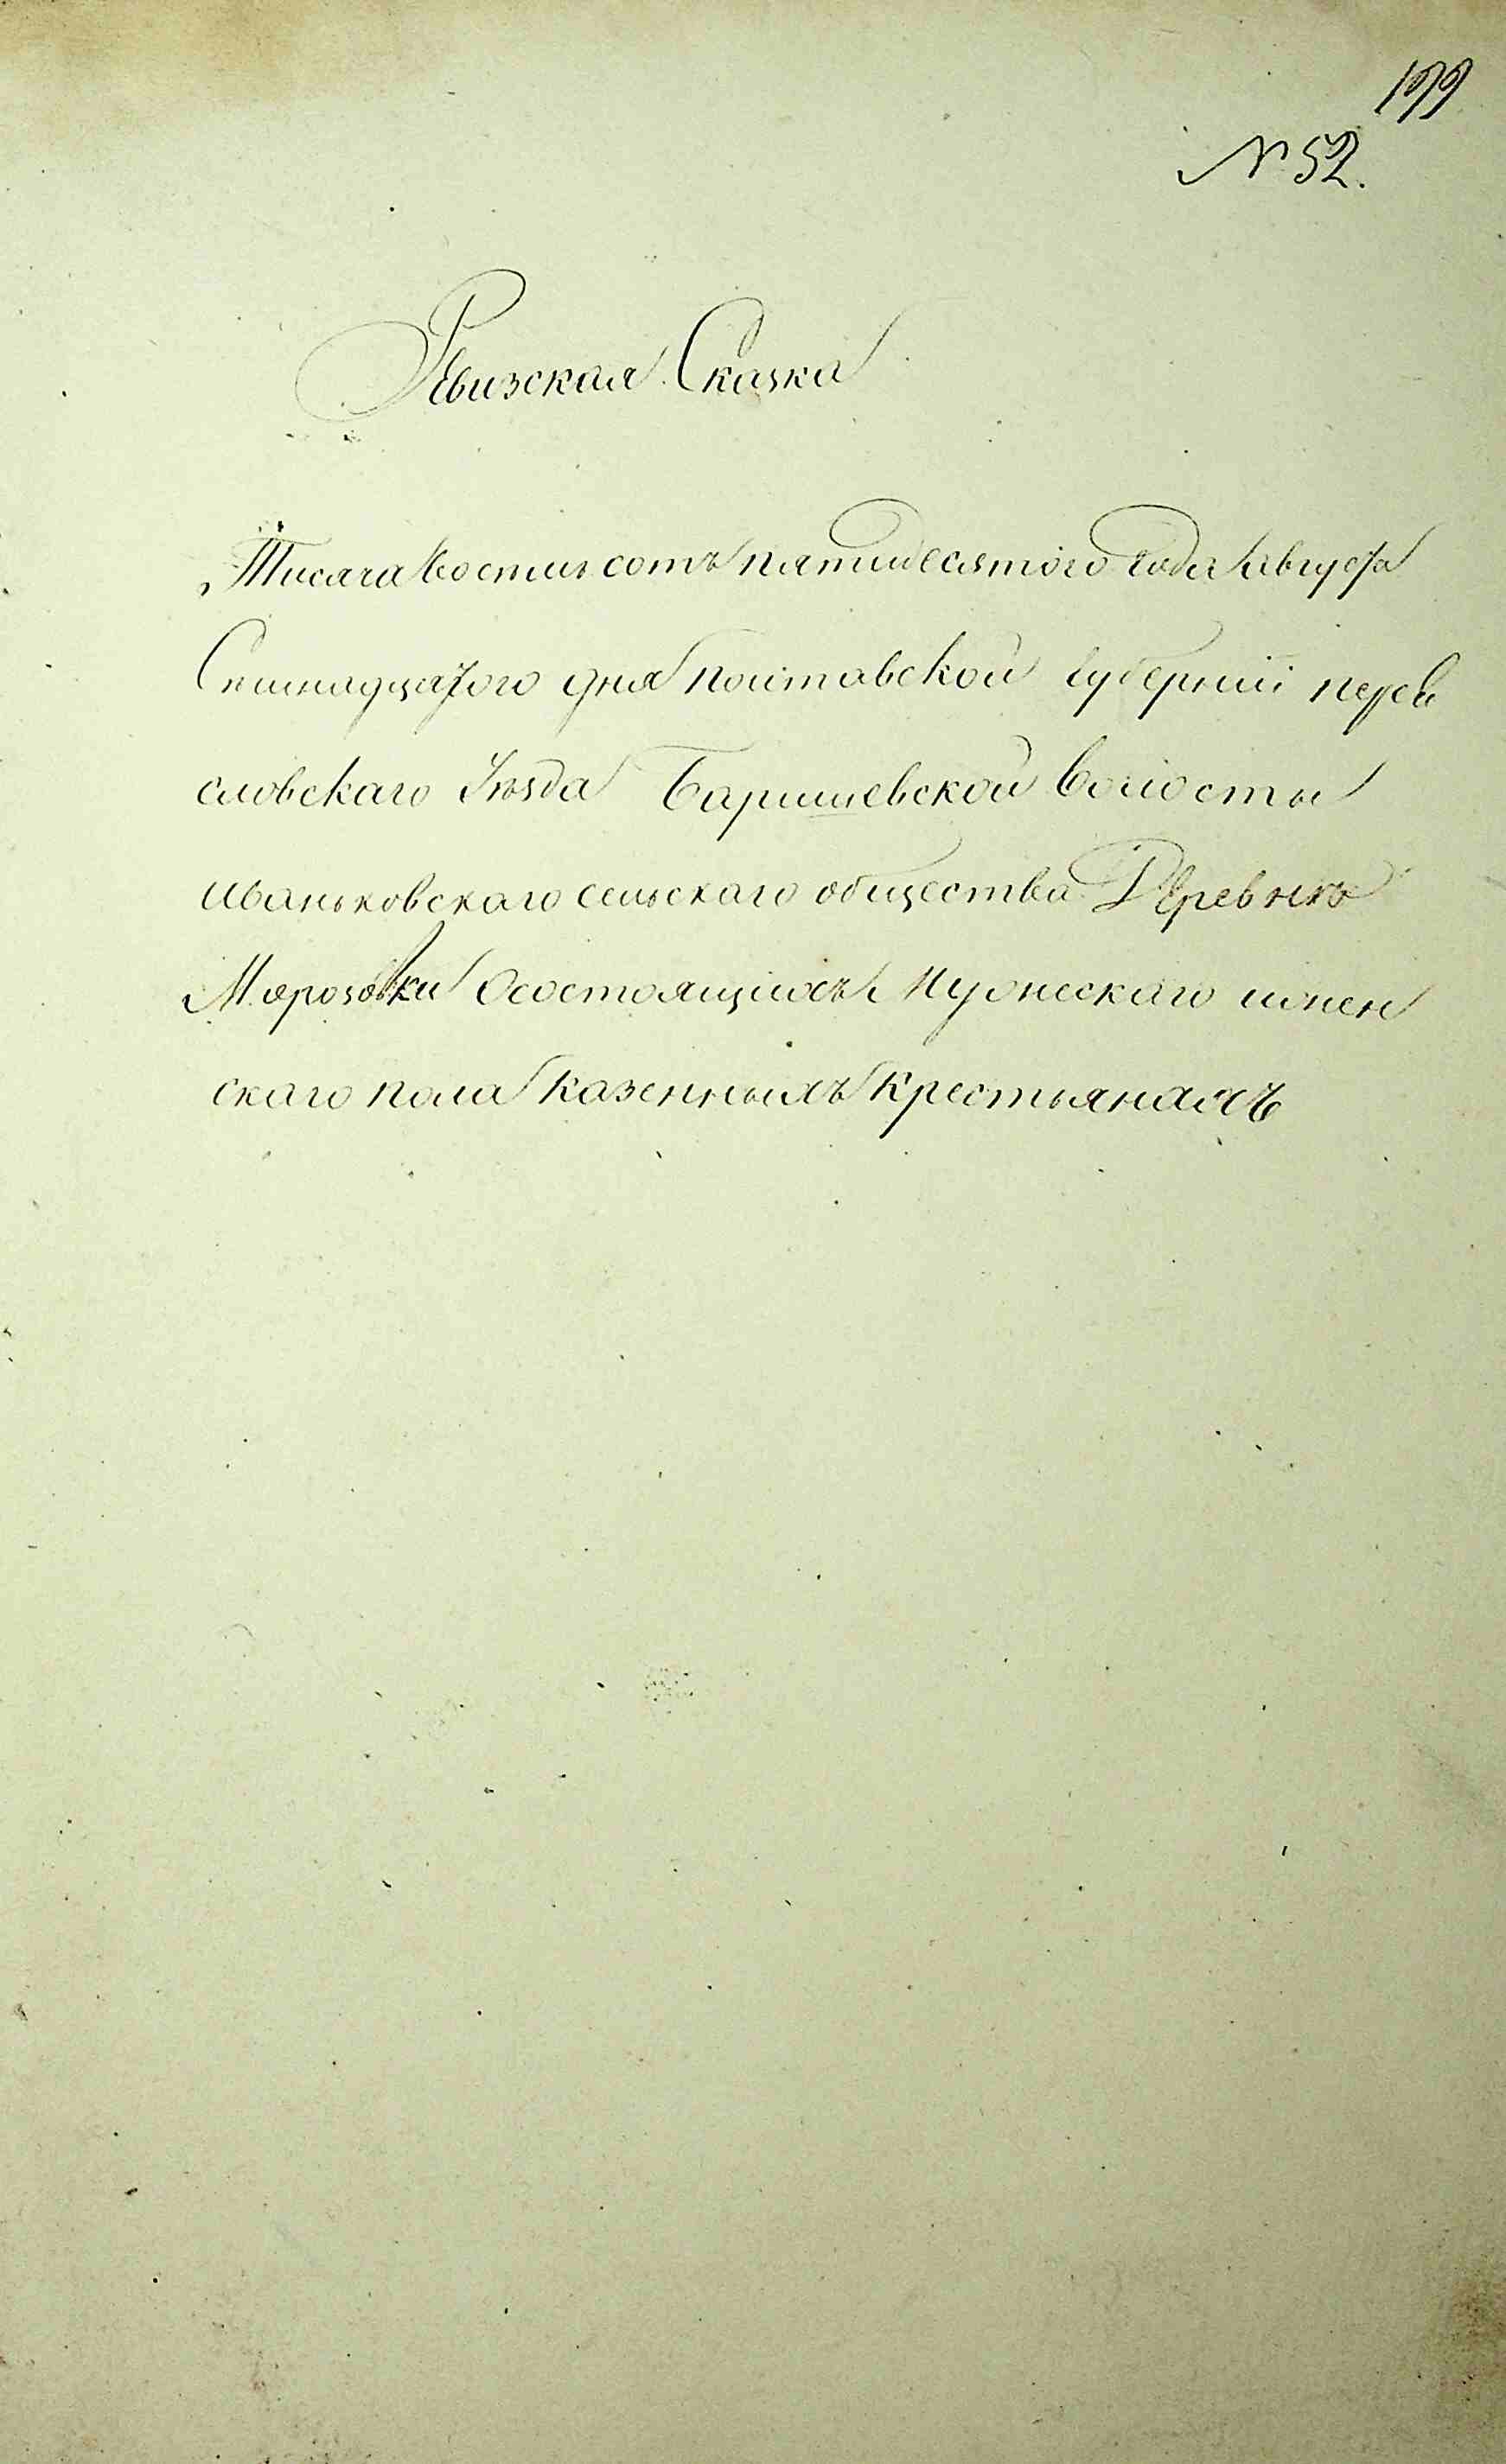 199
№ 52.
Ревизская Сказка
Тисяча восемь сотъ пятидесятого года августа
Семнадцатого дня полтавской губерніи перея
словскаго Уезда Баришевской волосты
иваньковскаго сельскаго общества Деревнѣ
Морозовки Осостоящихъ мужескаго иженъ
скаго пола казенныхъ крестьянахъ